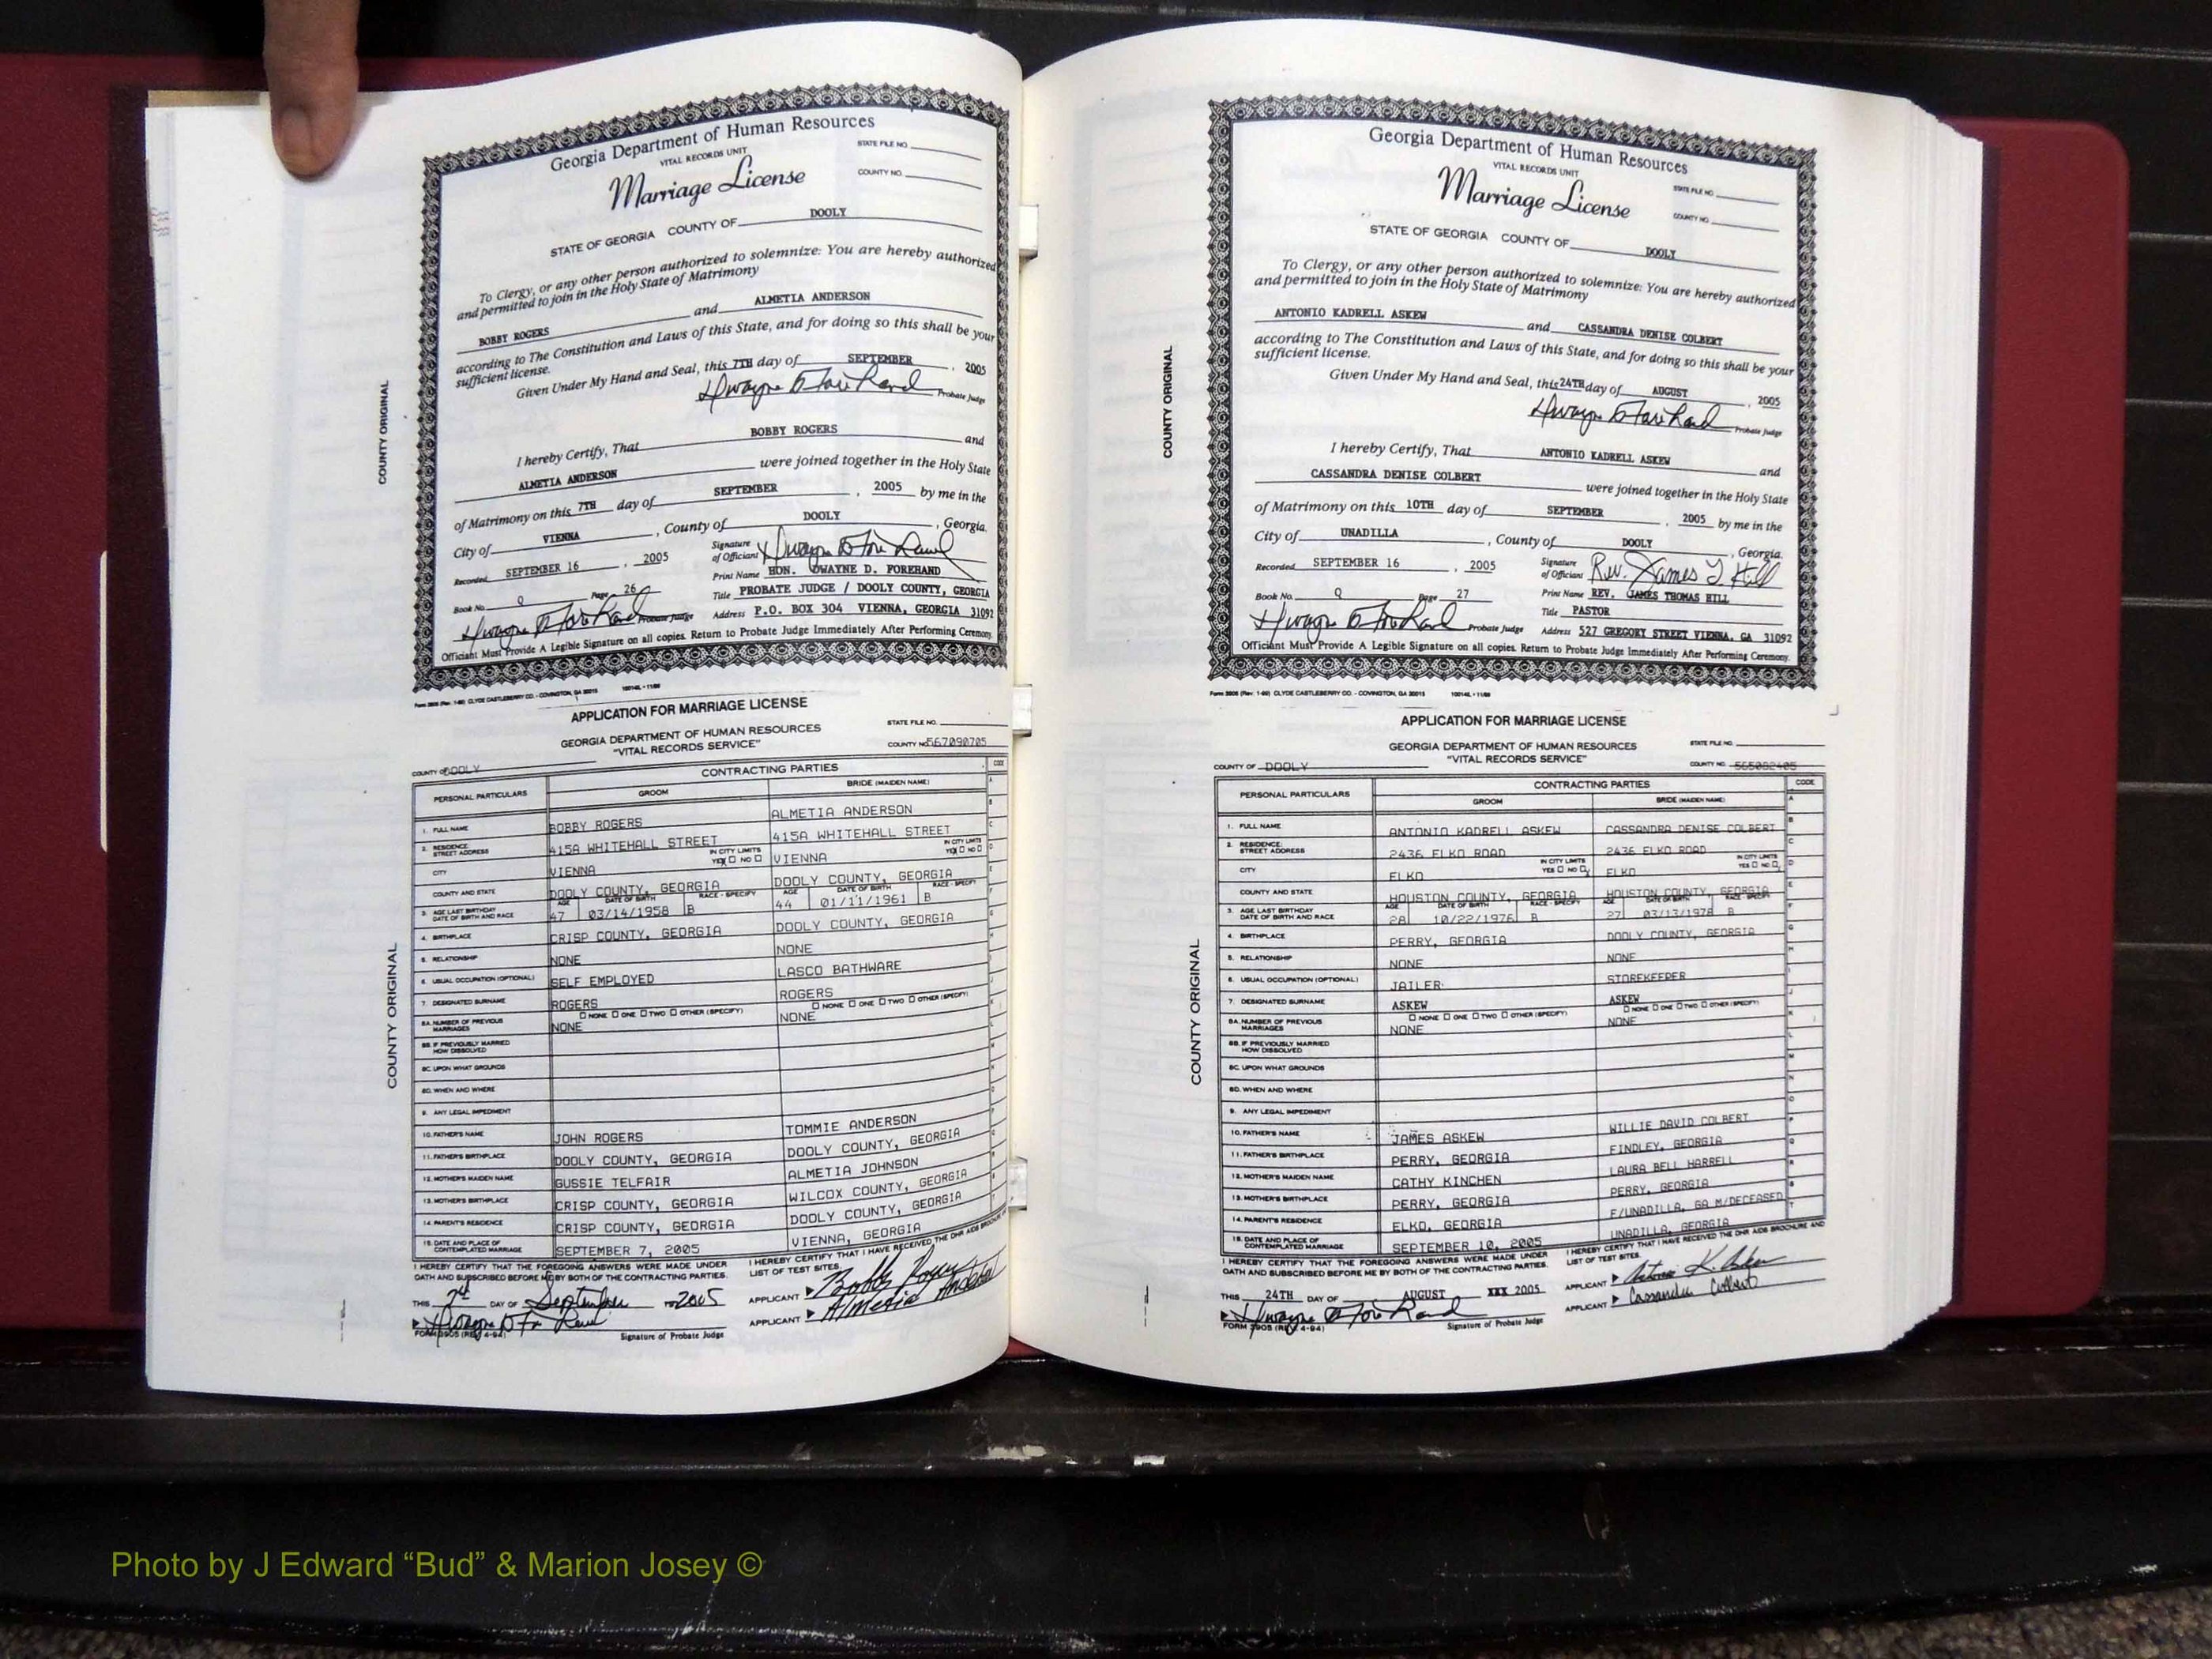 Georgia Department of Human Resources
VITAL RECORDS UNIT
STATE FILE NO.
Marriage License
COUNTY NO.
STATE OF GEORGIA COUNTY OF DOOLY
To Clergy, or any other person authorized to solemnize: You are hereby authorized
and permitted to join in the Holy State of Matrimony
BOBBY ROGERS and ALMETIA ANDERSON
according to The Constitution and Laws of this State, and for doing so this shall be your
sufficient license.
Given Under My Hand and Seal, this 7TH day of SEPTEMBER, 2005
Probate Judge
I hereby Certify, That BOBBY ROGERS and
ALMETIA ANDERSON were joined together in the Holy State
of Matrimony on this 7TH day of SEPTEMBER, 2005 by me in the
City of VIENNA, County of DOOLY, Georgia.
Recorded SEPTEMBER 16, 2005 Signature of Officiant
Print Name HON. DWAYNE D. FOREHAND
Book No. Q Page 26 Title PROBATE JUDGE / DOOLY COUNTY, GEORGIA
Probate Judge Address P.O. BOX 304 VIENNA, GEORGIA 31092
Officiant Must Provide A Legible Signature on all copies. Return to Probate Judge Immediately After Performing Ceremony.
COUNTY ORIGINAL
APPLICATION FOR MARRIAGE LICENSE
GEORGIA DEPARTMENT OF HUMAN RESOURCES
"VITAL RECORDS SERVICE"
STATE FILE NO.
COUNTY NO. 567090705
COUNTY OF DOOLY
CONTRACTING PARTIES CODE
PERSONAL PARTICULARS GROOM BRIDE (MAIDEN NAME)
1. FULL NAME BOBBY ROGERS ALMETIA ANDERSON
2. RESIDENCE: STREET ADDRESS 415A WHITEHALL STREET 415A WHITEHALL STREET
CITY VIENNA IN CITY LIMITS YES X NO VIENNA IN CITY LIMITS YES X NO
COUNTY AND STATE DOOLY COUNTY, GEORGIA DOOLY COUNTY, GEORGIA
3. AGE LAST BIRTHDAY DATE OF BIRTH AND RACE AGE 47 DATE OF BIRTH 03/14/1958 RACE - SPECIFY B AGE 44 DATE OF BIRTH 01/11/1961 RACE - SPECIFY B
4. BIRTHPLACE CRISP COUNTY, GEORGIA DOOLY COUNTY, GEORGIA
5. RELATIONSHIP NONE NONE
6. USUAL OCCUPATION (OPTIONAL) SELF EMPLOYED LASCO BATHWARE
7. DESIGNATED SURNAME ROGERS ROGERS
8A. NUMBER OF PREVIOUS MARRIAGES NONE ONE TWO OTHER (SPECIFY) NONE NONE ONE TWO OTHER (SPECIFY) NONE
8B. IF PREVIOUSLY MARRIED HOW DISSOLVED
8C. UPON WHAT GROUNDS
8D. WHEN AND WHERE
9. ANY LEGAL IMPEDIMENT
10. FATHER'S NAME JOHN ROGERS TOMMIE ANDERSON
11. FATHER'S BIRTHPLACE DOOLY COUNTY, GEORGIA DOOLY COUNTY, GEORGIA
12. MOTHER'S MAIDEN NAME GUSSIE TELFAIR ALMETIA JOHNSON
13. MOTHER'S BIRTHPLACE CRISP COUNTY, GEORGIA WILCOX COUNTY, GEORGIA
14. PARENT'S RESIDENCE CRISP COUNTY, GEORGIA DOOLY COUNTY, GEORGIA
15. DATE AND PLACE OF CONTEMPLATED MARRIAGE SEPTEMBER 7, 2005 VIENNA, GEORGIA
I HEREBY CERTIFY THAT THE FOREGOING ANSWERS WERE MADE UNDER
OATH AND SUBSCRIBED BEFORE ME BY BOTH OF THE CONTRACTING PARTIES.
I HEREBY CERTIFY THAT I HAVE RECEIVED THE DHR AIDS BROCHURE AND
LIST OF TEST SITES.
THIS 7th DAY OF September 2005
APPLICANT Bobby Rogers
APPLICANT Almetia Anderson
FORM 3905 (REV. 4-94) Signature of Probate Judge
COUNTY ORIGINAL
Georgia Department of Human Resources
VITAL RECORDS UNIT
STATE FILE NO.
Marriage License
COUNTY NO.
STATE OF GEORGIA COUNTY OF DOOLY
To Clergy, or any other person authorized to solemnize: You are hereby authorized
and permitted to join in the Holy State of Matrimony
ANTONIO KADRELL ASKEW and CASSANDRA DENISE COLBERT
according to The Constitution and Laws of this State, and for doing so this shall be your
sufficient license.
Given Under My Hand and Seal, this 24TH day of AUGUST, 2005
Probate Judge
I hereby Certify, That ANTONIO KADRELL ASKEW and
CASSANDRA DENISE COLBERT were joined together in the Holy State
of Matrimony on this 10TH day of SEPTEMBER, 2005 by me in the
City of UNADILLA, County of DOOLY, Georgia.
Recorded SEPTEMBER 16, 2005 Signature of Officiant Rev. James T Hill
Print Name REV. JAMES THOMAS HILL
Book No. Q Page 27 Title PASTOR
Probate Judge Address 527 GREGORY STREET VIENNA, GA 31092
Officiant Must Provide A Legible Signature on all copies. Return to Probate Judge Immediately After Performing Ceremony.
COUNTY ORIGINAL
APPLICATION FOR MARRIAGE LICENSE
GEORGIA DEPARTMENT OF HUMAN RESOURCES
"VITAL RECORDS SERVICE"
STATE FILE NO.
COUNTY NO. 565082405
COUNTY OF DOOLY
CONTRACTING PARTIES CODE
PERSONAL PARTICULARS GROOM BRIDE (MAIDEN NAME)
1. FULL NAME ANTONIO KADRELL ASKEW CASSANDRA DENISE COLBERT
2. RESIDENCE: STREET ADDRESS 2436 ELKO ROAD 2436 ELKO ROAD
CITY ELKO IN CITY LIMITS YES NO ELKO IN CITY LIMITS YES NO
COUNTY AND STATE HOUSTON COUNTY, GEORGIA HOUSTON COUNTY, GEORGIA
3. AGE LAST BIRTHDAY DATE OF BIRTH AND RACE AGE 28 DATE OF BIRTH 10/22/1976 RACE - SPECIFY B AGE 27 DATE OF BIRTH 03/13/1978 RACE - SPECIFY B
4. BIRTHPLACE PERRY, GEORGIA DOOLY COUNTY, GEORGIA
5. RELATIONSHIP NONE NONE
6. USUAL OCCUPATION (OPTIONAL) JAILER STOREKEEPER
7. DESIGNATED SURNAME ASKEW ASKEW
8A. NUMBER OF PREVIOUS MARRIAGES NONE ONE TWO OTHER (SPECIFY) NONE NONE ONE TWO OTHER (SPECIFY) NONE
8B. IF PREVIOUSLY MARRIED HOW DISSOLVED
8C. UPON WHAT GROUNDS
8D. WHEN AND WHERE
9. ANY LEGAL IMPEDIMENT
10. FATHER'S NAME JAMES ASKEW WILLIE DAVID COLBERT
11. FATHER'S BIRTHPLACE PERRY, GEORGIA FINDLEY, GEORGIA
12. MOTHER'S MAIDEN NAME CATHY KINCHEN LAURA BELL HARRELL
13. MOTHER'S BIRTHPLACE PERRY, GEORGIA PERRY, GEORGIA
14. PARENT'S RESIDENCE ELKO, GEORGIA F/UNADILLA, GA M/DECEASED
15. DATE AND PLACE OF CONTEMPLATED MARRIAGE SEPTEMBER 10, 2005 UNADILLA, GEORGIA
I HEREBY CERTIFY THAT THE FOREGOING ANSWERS WERE MADE UNDER
OATH AND SUBSCRIBED BEFORE ME BY BOTH OF THE CONTRACTING PARTIES.
I HEREBY CERTIFY THAT I HAVE RECEIVED THE DHR AIDS BROCHURE AND
LIST OF TEST SITES.
THIS 24TH DAY OF AUGUST XXX 2005
APPLICANT Antonio K. Askew
APPLICANT Cassandra Colbert
FORM 3905 (REV. 4-94) Signature of Probate Judge
COUNTY ORIGINAL
Photo by J Edward “Bud” & Marion Josey ©